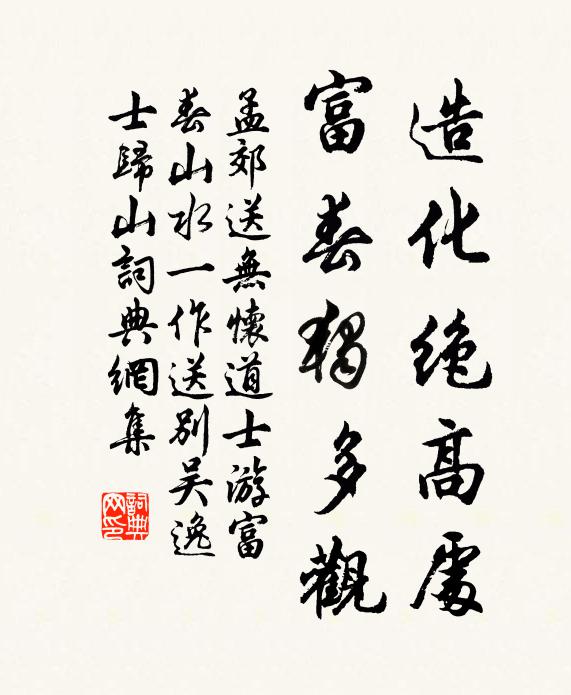 造化绝高處
富春獨多觀
孟郊送無懷道士游富
春山水一作送別吴逸
士歸山詞典網集
詞典网印